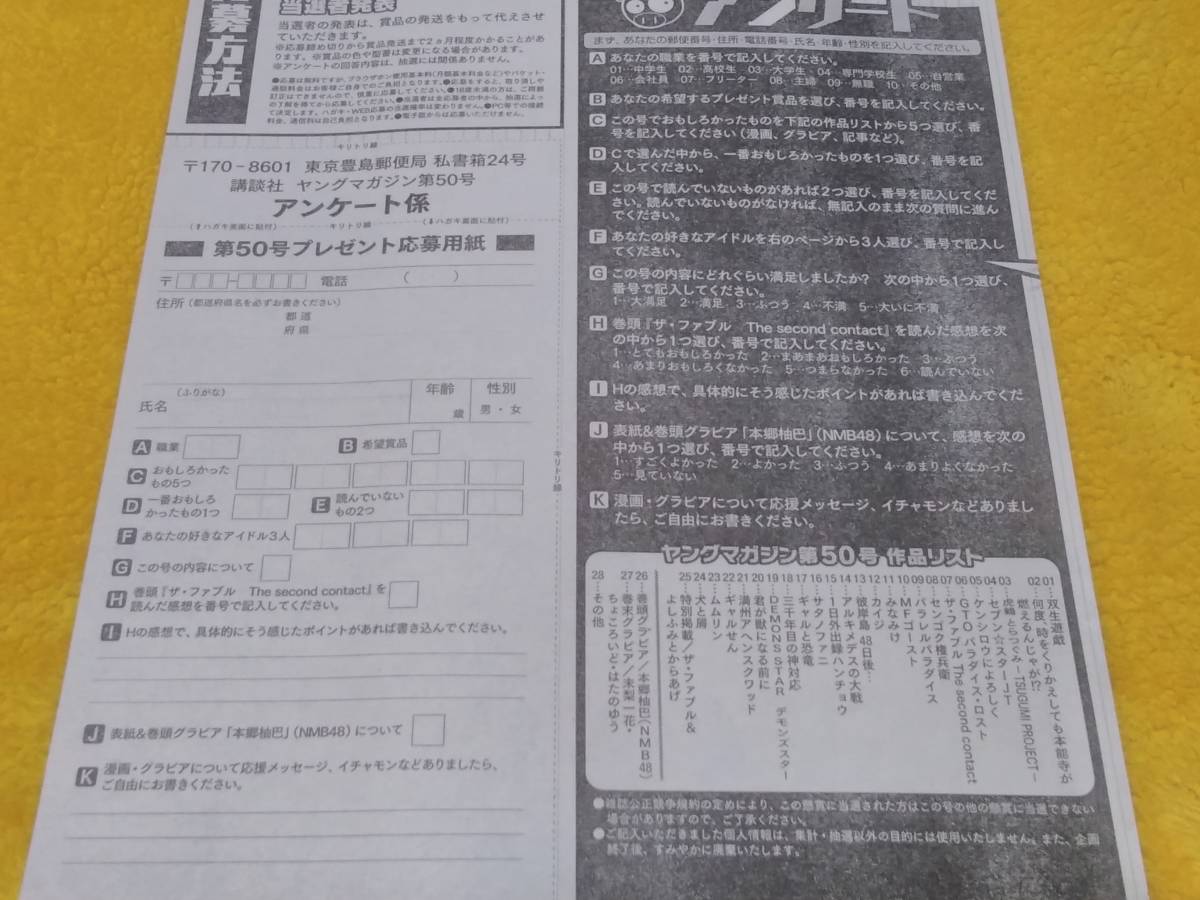 募方法
当選者発表
当選者の発表は、賞品の発送をもって代えさせ
ていただきます。
※応募締め切りから賞品発送まで2ヵ月程度かかることがあ
ります。※賞品の色や型番は変更になる場合があります。
※アンケートの回答内容は、抽選には関係ありません。
キリトリ線
〒170-8601 東京豊島郵便局 私書箱24号
講談社 ヤングマガジン第50号
アンケート係
(↑ハガキ表面に貼付) キリトリ線 (↓ハガキ裏面に貼付)
第50号プレゼント応募用紙
〒 - 電話 ( )
住所(都道府県名を必ずお書きください)
都道
府県
(ふりがな)
氏名
年齢
歳
性別
男・女
A 職業
B 希望賞品
C おもしろかった
もの5つ
D 一番おもしろ
かったもの1つ
E 読んでいない
もの2つ
F あなたの好きなアイドル3人
G この号の内容について
H 巻頭『ザ・ファブル The second contact』を
読んだ感想を番号で記入してください。
I Hの感想で、具体的にそう感じたポイントがあれば書き込んでください。
J 表紙&巻頭グラビア「本郷柚巴」(NMB48)について
K 漫画・グラビアについて応援メッセージ、イチャモンなどありましたら、
ご自由にお書きください。
キリトリ線
アンケート
まず、あなたの郵便番号・住所・電話番号・氏名・年齢・性別を記入してください。
A あなたの職業を番号で記入してください。
01…中学生 02…高校生 03…大学生 04…専門学校生 05…自営業
06…会社員 07…フリーター 08…主婦 09…無職 10…その他
B あなたの希望するプレゼント賞品を選び、番号を記入してください。
C この号でおもしろかったものを下記の作品リストから5つ選び、番
号を記入してください(漫画、グラビア、記事など)。
D Cで選んだ中から、一番おもしろかったものを1つ選び、番号を記
入してください。
E この号で読んでいないものがあれば2つ選び、番号を記入してくだ
さい。読んでいないものがなければ、無記入のまま次の質問に進ん
でください。
F あなたの好きなアイドルを右のページから3人選び、番号で記入し
てください。
G この号の内容にどれぐらい満足しましたか? 次の中から1つ選び、
番号で記入してください。
1…大満足 2…満足 3…ふつう 4…不満 5…大いに不満
H 巻頭『ザ・ファブル The second contact』を読んだ感想を次
の中から1つ選び、番号で記入してください。
1…とてもおもしろかった 2…まあまあおもしろかった 3…ふつう
4…あまりおもしろくなかった 5…つまらなかった 6…読んでいない
I Hの感想で、具体的にそう感じたポイントがあれば書き込んでくだ
さい。
J 表紙&巻頭グラビア「本郷柚巴」(NMB48)について、感想を次の
中から1つ選び、番号で記入してください。
1…すごくよかった 2…よかった 3…ふつう 4…あまりよくなかった
5…見ていない
K 漫画・グラビアについて応援メッセージ、イチャモンなどありまし
たら、ご自由にお書きください。
ヤングマガジン第50号 作品リスト
01…双生遊戯
02…何度、時をくりかえしても本能寺が
燃えるんじゃが!?
03…虎鶫 とらつぐみ-TSUGUMI PROJECT-
04…セブン☆スターJT
05…ケンシロウによろしく
06…GTO パラダイス・ロスト
07…ザ・ファブル The second contact
08…センゴク権兵衛
09…パラレルパラダイス
10…MFゴースト
11…みなみけ
12…カイジ
13…彼岸島 48日後…
14…アルキメデスの大戦
15…1日外出録ハンチョウ
16…サタノファニ
17…ギャルと恐竜
18…三千年目の神対応
19…DEMONS STAR デモンズスター
20…君が獣になる前に
21…満州アヘンスクワッド
22…ギャルせん
23…ムムリン
24…犬と屑
25…特別掲載/ザ・ファブル&
よしふみとからあげ
26…巻頭グラビア/本郷柚巴(NMB48)
27…巻末グラビア/未梨一花・
ちょころいど・はたのゆう
28…その他
●雑誌公正競争規約の定めにより、この懸賞に当選された方はこの号の他の懸賞に当選できない
場合がありますので、ご了承ください。
●ご記入いただきました個人情報は、集計・抽選以外の目的には使用いたしません。また、企画
終了後、すみやかに廃棄いたします。